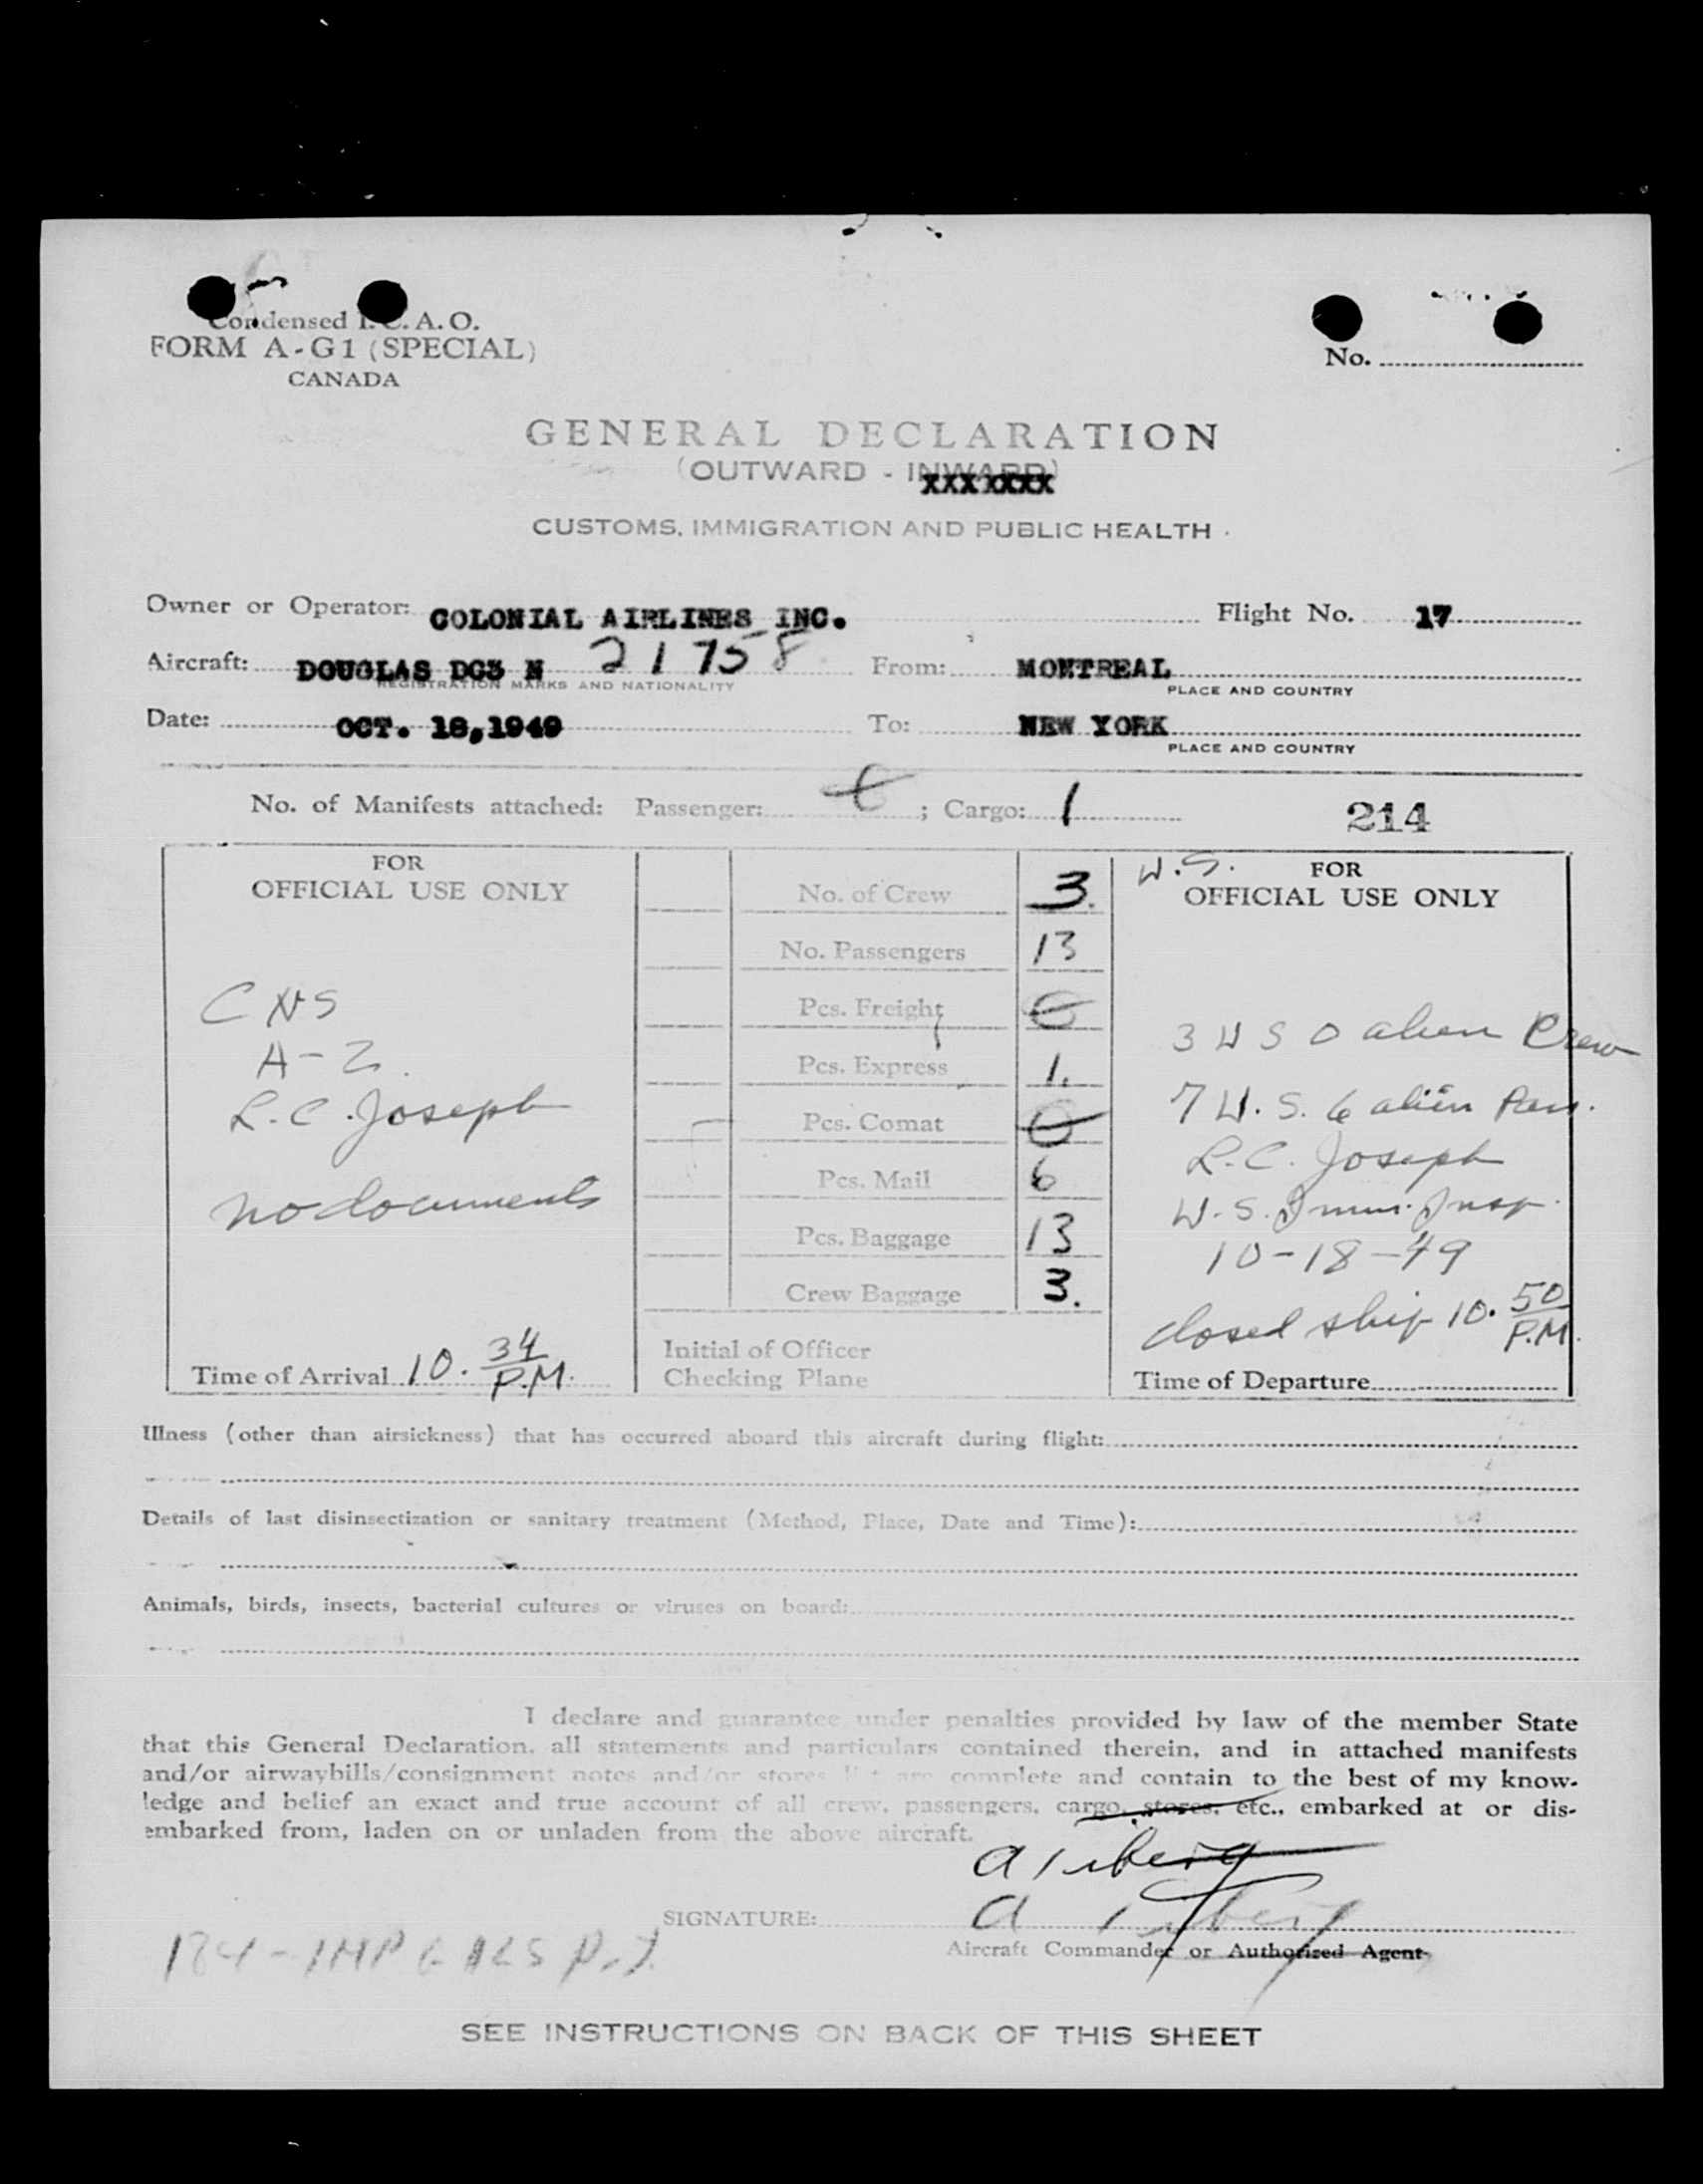 Condensed I.C.A.O.
FORM A-G1 (SPECIAL)
CANADA
No.
GENERAL DECLARATION
(OUTWARD - INWARD)
XXXXXXX
CUSTOMS, IMMIGRATION AND PUBLIC HEALTH
Owner or Operator: COLONIAL AIRLINES INC. Flight No. 17
Aircraft: DOUGLAS DC3 N 21758 From: MONTREAL
REGISTRATION MARKS AND NATIONALITY PLACE AND COUNTRY
Date: OCT. 18,1949 To: NEW YORK
PLACE AND COUNTRY
No. of Manifests attached: Passenger: ; Cargo: 1 214
FOR
OFFICIAL USE ONLY
CNS
A-2.
L.C. Joseph
no documents
Time of Arrival 10. 34 P.M.
No. of Crew 3.
No. Passengers 13
Pcs. Freight 0
Pcs. Express 1.
Pcs. Comat 0
Pcs. Mail 6
Pcs. Baggage 13
Crew Baggage 3.
Initial of Officer
Checking Plane
U.S. FOR
OFFICIAL USE ONLY
3 U S 0 alien Crew
7 U.S. 6 alien Pass.
L.C. Joseph
U.S. Imm. Insp.
10-18-49
closed ship 10. 50 P.M.
Time of Departure
Illness (other than airsickness) that has occurred aboard this aircraft during flight:
Details of last disinsectization or sanitary treatment (Method, Place, Date and Time):
Animals, birds, insects, bacterial cultures or viruses on board:
I declare and guarantee under penalties provided by law of the member State
that this General Declaration, all statements and particulars contained therein, and in attached manifests
and/or airwaybills/consignment notes and/or stores list are complete and contain to the best of my know-
ledge and belief an exact and true account of all crew, passengers, cargo, stores, etc., embarked at or dis-
embarked from, laden on or unladen from the above aircraft.
SIGNATURE:
Aircraft Commander or Authorized Agent
SEE INSTRUCTIONS ON BACK OF THIS SHEET